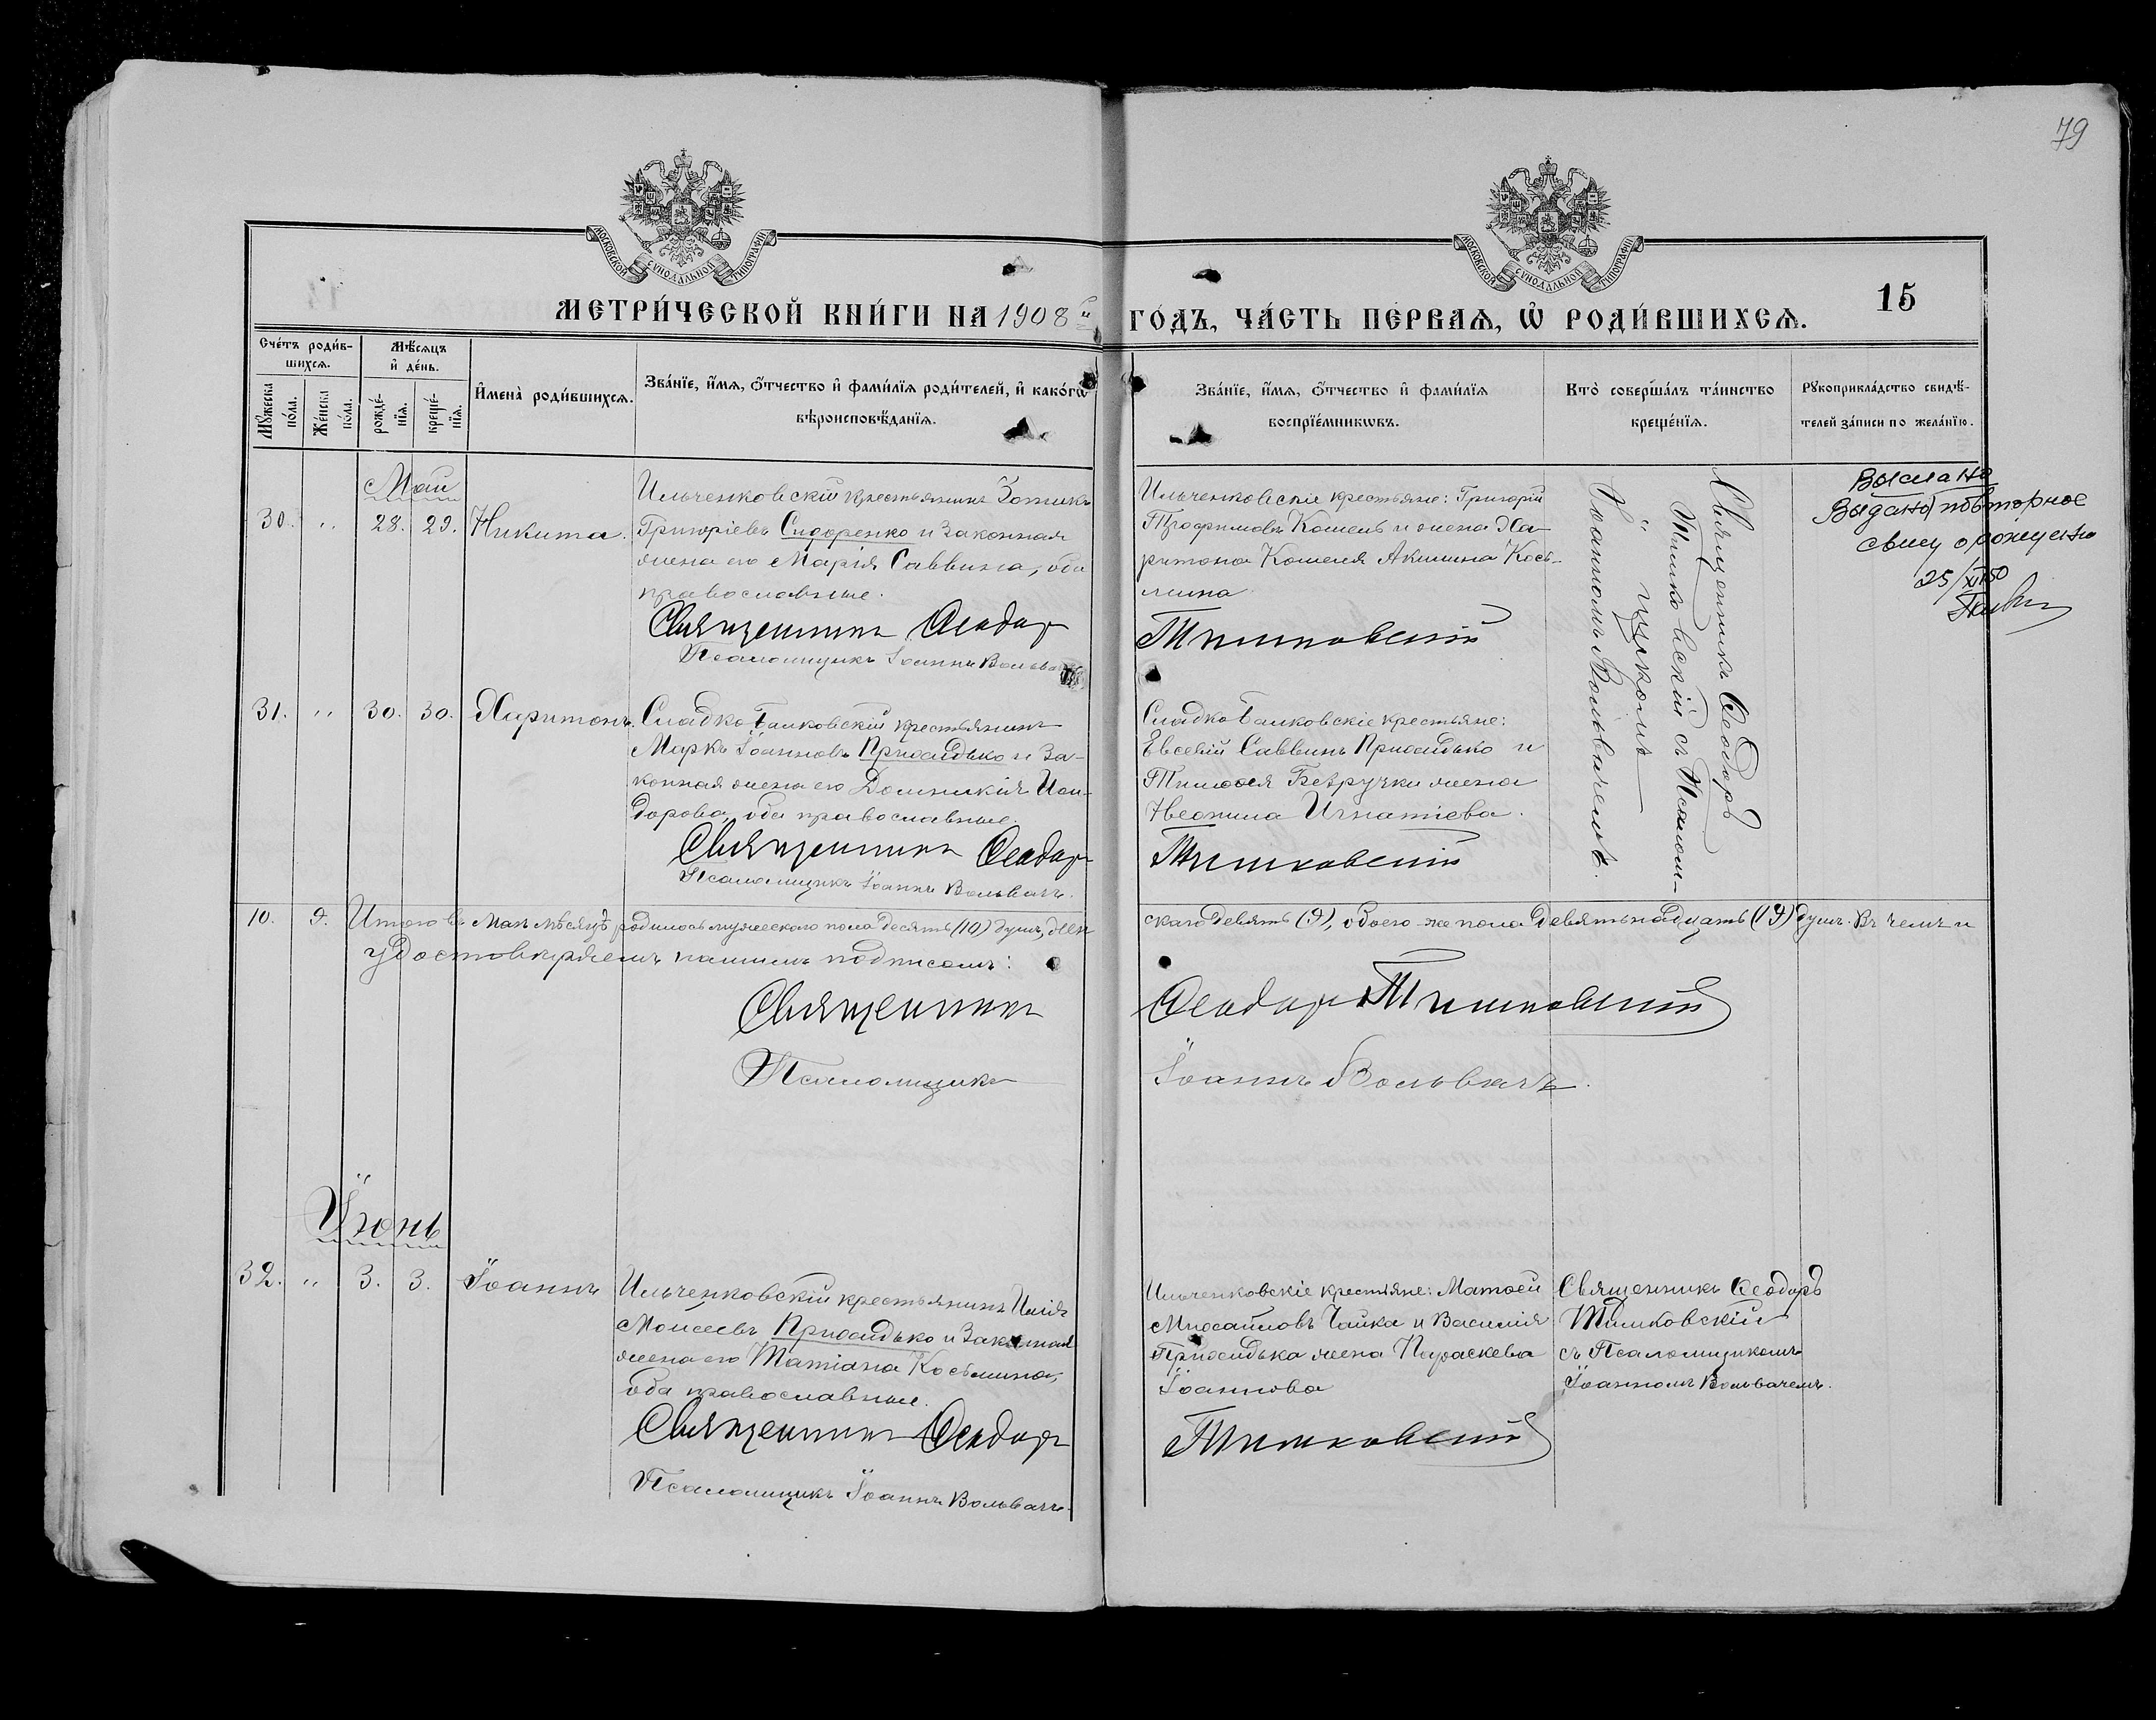 79
МОСКОВСКОЙ СУНОДАЛЬНОЙ ТИПОГРАФІИ
МОСКОВСКОЙ СУНОДАЛЬНОЙ ТИПОГРАФІИ
МЕТРИ́ЧЕСКОЙ КНИ́ГИ НА 1908й
ГО́ДЪ, ЧА́СТЬ ПЕ́РВАѦ, Ѡ҆ РОДИ́ВШИХСѦ.
15
Сче́тъ роди́в-
шихсѧ.
Мѣ́сѧцъ
и҆ де́нь.
Мꙋ́жеска
по́ла.
Же́нска
по́ла.
рожде́-
нїѧ.
креще́-
нїѧ.
И҆мена̀ роди́вшихсѧ.
Зва́нїе, и҆́мѧ, ѻ҆́тчество и҆ фами́лїѧ роди́телей, и҆ како́гѡ
вѣроисповѣ́данїѧ.
Зва́нїе, и҆́мѧ, ѻ҆́тчество и҆ фами́лїѧ
воспрїе́мникѡвъ.
Кто̀ соверша́лъ та́инство
креще́нїѧ.
Рꙋкоприкла́дство свидѣ́-
телей за́писи по жела́нїю.
Май
30. " 28. 29. Никита.
Ильченковскій крестьянинъ Зотикъ
Григоріевъ Сидоренко и законная
жена его Марія Саввина, оба
православные.
Священникъ Ѳеодоръ
Псаломщикъ Іоаннъ Вольвачъ
Ильченковскіе крестьяне: Григорій
Трофимовъ Кошель и жена Ха-
ритона Кошеля Акилина Косъ-
мина
Тимковскій
Священникъ Ѳеодоръ
Тимковскій съ Псалом-
щикомъ
Іоанномъ Вольвачемъ.
Выслано
Выдано повторное
свид о рожден
25/XI 50
31. " 30. 30. Харитонъ.
Сладко Балковскій крестьянинъ
Маркъ Іоанновъ Прихидько и за-
конная жена его Домникія Иси-
дорова, оба православные.
Священникъ Ѳеодоръ
Псаломщикъ Іоаннъ Вольвачъ.
Сладко Балковскіе крестьяне:
Евсевій Саввинъ Прихидько и
Тимоѳея Безручки жена
Неонила Игнатіева.
Тимковскій
10. 9. Итого въ Маѣ мѣсяцѣ родилось мужескаго пола десять (10) душъ, жен
скаго девять (9), обоего же пола девятьнадцать (19) душъ. Въ чемъ и
удостовѣряемъ нашимъ подписомъ:
Священникъ
Ѳеодоръ Тимковскій
Псаломщикъ
Іоаннъ Вольвачъ.
Іюнь
32. " 3. 3. Іоаннъ
Ильченковскій крестьянинъ Илія
Моисеевъ Прихидько и законная
жена его Татіана Косьмина,
оба православные.
Священникъ Ѳеодоръ
Псаломщикъ Іоаннъ Вольвачъ.
Ильченковскіе крестьяне: Матѳей
Михайловъ Чайка и Василія
Прихидька жена Параскева
Іоаннова
Тимковскій
Священникъ Ѳеодоръ
Тимковскій
съ Псаломщикомъ
Іоанномъ Вольвачемъ.